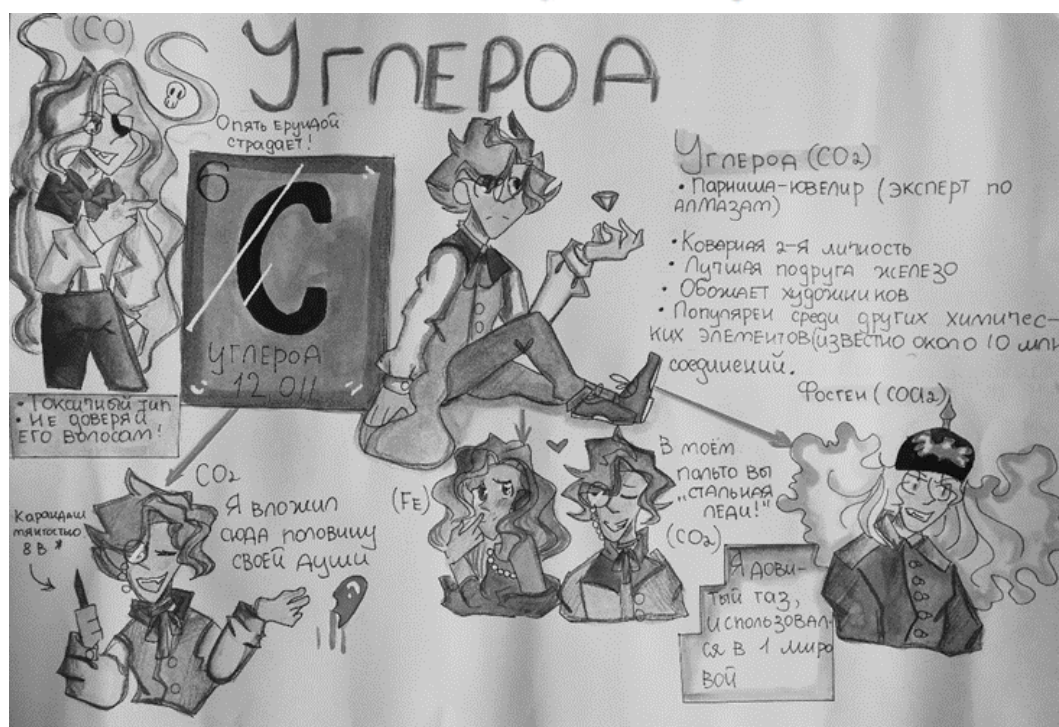 (CO)
УГЛЕРОД
Опять ерундой
страдает!
6
C
УГЛЕРОД
12,011
• Токсичный тип
• Не доверяй
его волосам!
Углерод (CO2)
• Парниша-ювелир (эксперт по
алмазам)
• Коварная 2-я личность
• Лучшая подруга железо
• Обожает художников
• Популярен среди других химичес-
ких элементов (известно около 10 млн
соединений.
Фосген (COCl2)
CO2
Я вложил
сюда половину
своей души
Карандаш
мягкостью
8 B *
(Fe)
В моём
пальто вы
„стальная
леди!"
(CO2)
Я ядови-
тый газ,
использовал-
ся в 1 миро
вой